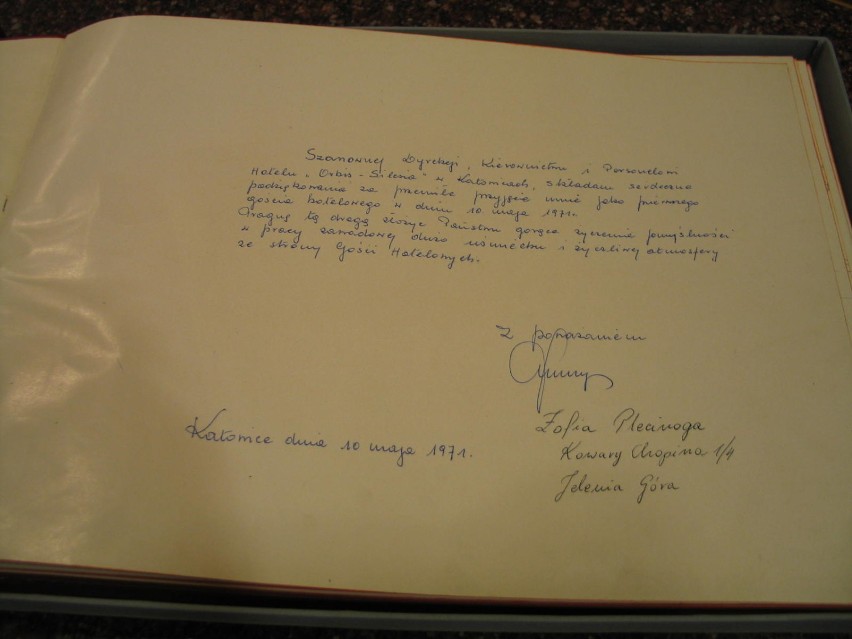 Szanownej Dyrekcji, Kierownictwu i Personelowi
Hotelu „Orbis-Silesia" w Katowicach, składam serdeczne
podziękowania za przemiłe przyjęcie mnie jako pierwszego
gościa hotelowego w dniu 10 maja 1971r.
Pragnę tą drogą złożyć Państwu gorące życzenia pomyślności
w pracy zawodowej dużo uśmiechu i życzliwej atmosfery
ze strony Gości Hotelowych.
Z poważaniem
Katowice dnia 10 maja 1971.
Zofia Plecinoga
Kowary Chopina 1/4
Jelenia Góra